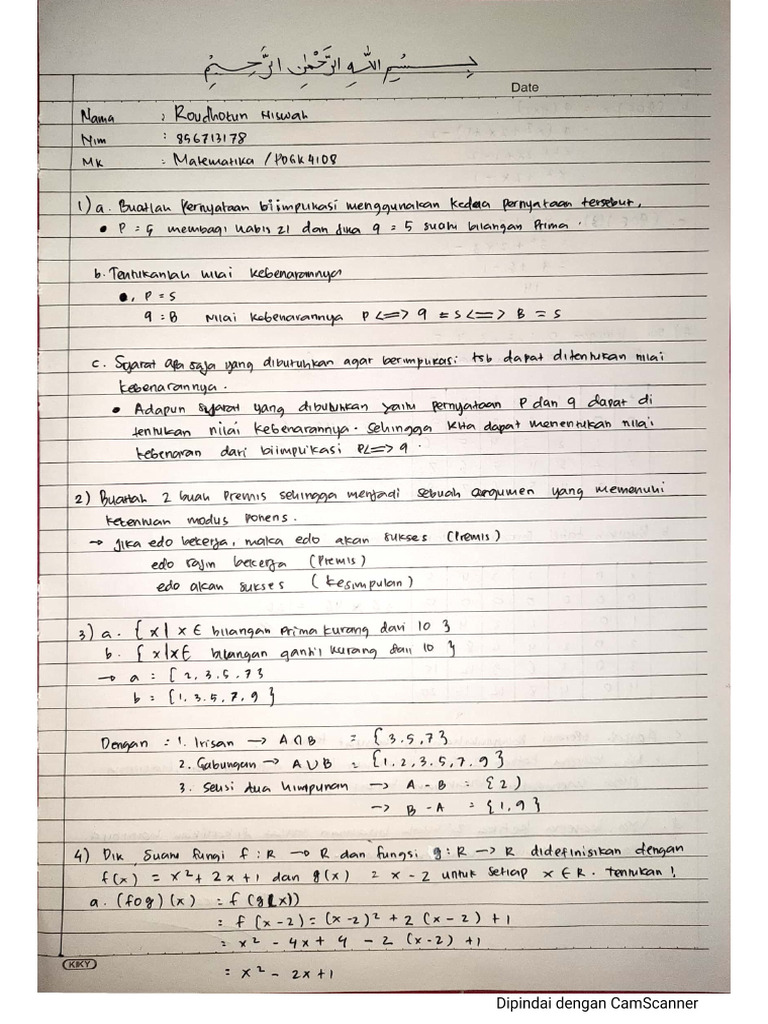 بِسْمِ اللهِ الرَّحْمٰنِ الرَّحِيْمِ
Date
Nama : Roudhotun Niswah
Nim : 856713178
MK : Matematika / PDGK4108
1) a. Buatlah Pernyataan biimpukasi menggunakan kedua pernyataan tersebut.
• P = 5 membagi habis 21 dan Jika q = 5 suatu bilangan Prima.
b. Tentukanlah nilai kebenarannya
•. P = S
q = B Nilai kebenarannya P <=> q = S <=> B = S
c. Syarat apa saja yang dibutuhkan agar berimpukasi tsb dapat ditentukan nilai
kebenarannya.
• Adapun syarat yang dibutuhkan yaitu pernyataan P dan q dapat di
tentukan nilai kebenarannya. Sehingga kita dapat menentukan nilai
kebenaran dari biimpikasi P<=> q.
2) Buatlah 2 buah Premis sehingga menjadi sebuah argumen yang memenuhi
ketentuan modus ponens.
→ Jika edo bekerja, maka edo akan sukses (Premis)
edo rajin bekerja (Premis)
edo akan sukses (kesimpulan)
3) a. { x | x ∈ bilangan Prima kurang dari 10 }
b. { x | x ∈ bilangan ganjil kurang dari 10 }
→ a = { 2, 3. 5. 7 }
b = { 1. 3. 5. 7. 9 }
Dengan = 1. Irisan → A ∩ B = { 3. 5, 7 }
2. Gabungan → A ∪ B = { 1. 2, 3. 5, 7. 9 }
3. Selisi dua himpunan → A - B = { 2 )
→ B - A = { 1, 9 }
4) Dik Suatu fungi f : R → R dan fungsi g : R → R didefinisikan dengan
f(x) = x² + 2x + 1 dan g(x) = x - 2 untuk setiap x ∈ R. tentukan!
a. (fog) (x) = f (g(x))
= f (x - 2) = (x - 2)² + 2 (x - 2) + 1
= x² - 4x + 4 - 2 (x - 2) + 1
= x² - 2x + 1
KIKY
Dipindai dengan CamScanner